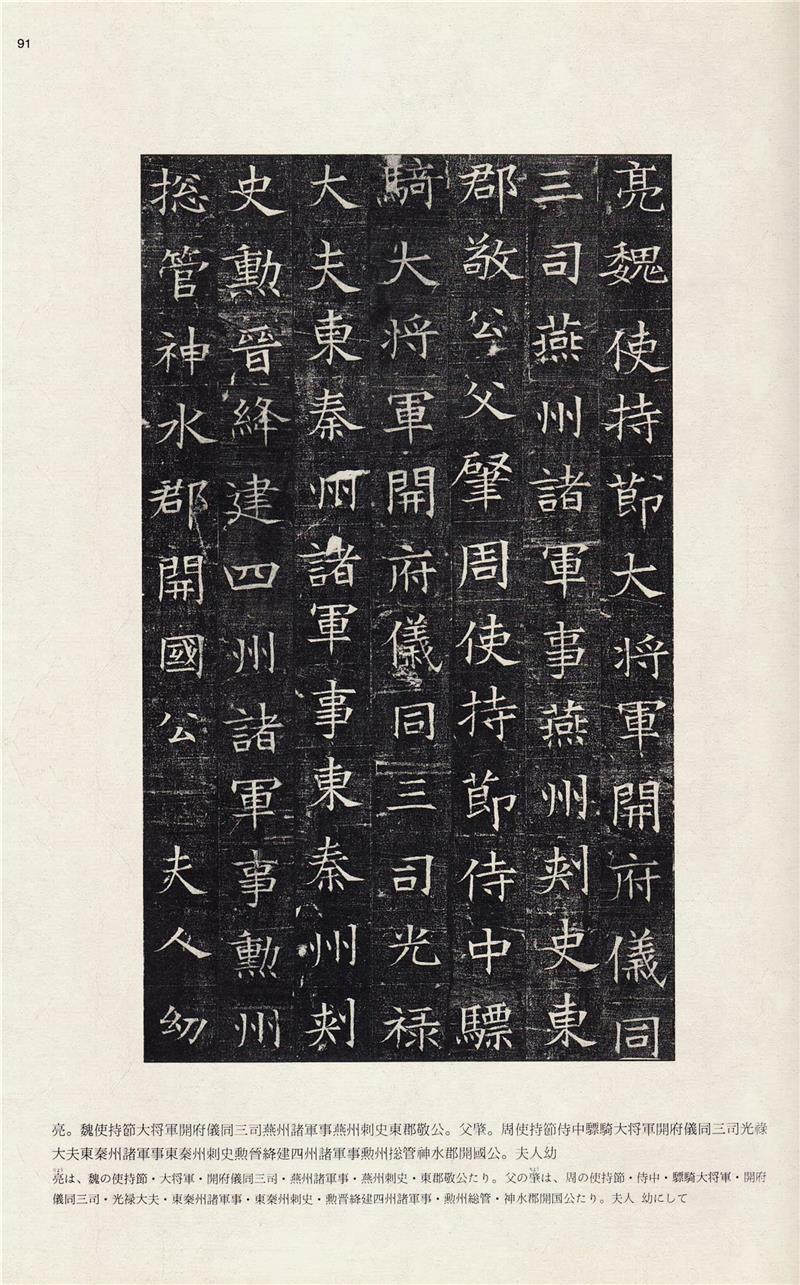 91
亮魏使持節大将軍開府儀同
三司燕州諸軍事燕州刺史東
郡敬公父肇周使持節侍中驃
騎大将軍開府儀同三司光禄
大夫東秦州諸軍事東秦州刺
史勲晉絳建四州諸軍事勲州
捴管神水郡開國公 夫人幼
亮。魏使持節大将軍開府儀同三司燕州諸軍事燕州刺史東郡敬公。父肇。周使持節侍中驃騎大将軍開府儀同三司光祿
大夫東秦州諸軍事東秦州刺史勲晉絳建四州諸軍事勲州捴管神水郡開國公。夫人幼
亮は、魏の使持節・大将軍・開府儀同三司・燕州諸軍事・燕州刺史・東郡敬公たり。父の肇は、周の使持節・侍中・驃騎大将軍・開府
儀同三司・光禄大夫・東秦州諸軍事・東秦州刺史・勲晋絳建四州諸軍事・勲州総管・神水郡開国公たり。夫人 幼にして